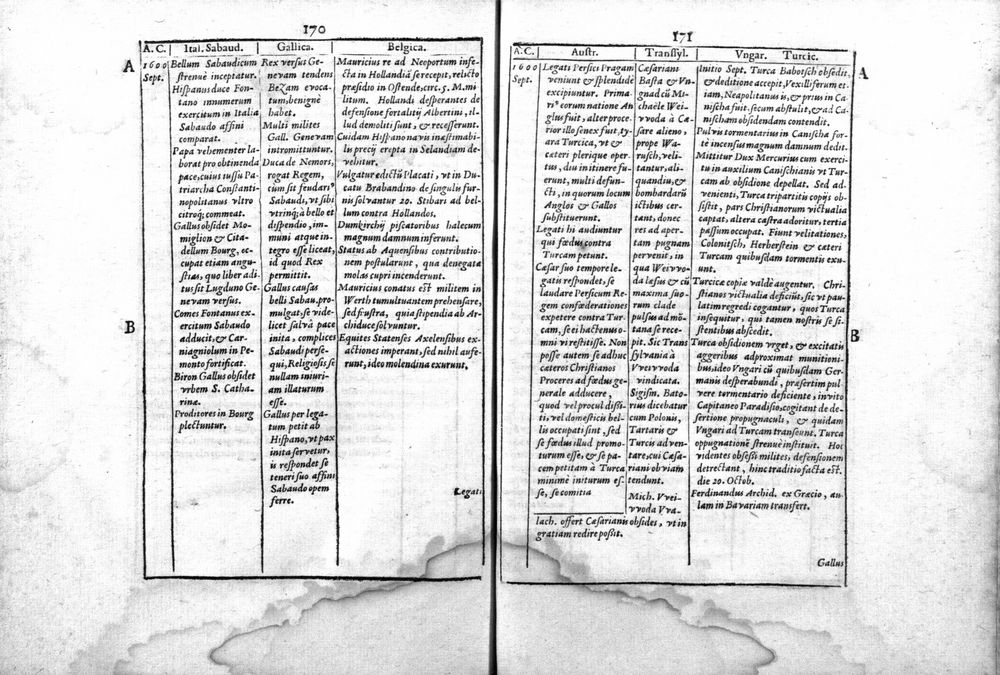 170
A. C.
Ital. Sabaud.
Gallica.
Belgica.
A
1600
Sept.
B
Bellum Sabaudicum
strenuè inceptatur.
Hispanus duce Fon-
tano innumerum
exercitum in Italia
Sabaudo affini
comparat.
Papa vehementer la-
borat pro obtinenda
pace, cuius jussu Pa-
triarcha Constanti-
nopolitanus vltro
citroq; commeat.
Gallus obsidet Mo-
miglion & Cita-
dellum Bourg, oc-
cupat etiam angu-
stias, quo liber adi-
tus sit Lugduno Ge-
nevam versus.
Comes Fontanus ex-
ercitum Sabaudo
adducit, & Car-
niagniolum in Pe-
monto fortificat.
Biron Gallus obsidet
vrbem S. Catha-
rinæ.
Proditores in Bourg
plectuntur.
Rex versus Ge-
nevam tendens
Bezam evoca-
tum, benignè
habet.
Multi milites
Gall. Genevam
intromittuntur.
Duca de Nemors,
rogat Regem,
cùm sit feudari⁹
Sabaudi, vt sibi
vtrinq; à bello et
dispendio, im-
muni atque in-
tegro esse liceat,
id quod Rex
permittit.
Gallus causas
belli Sabau. pro-
mulgat, se vide-
licet salvâ pace
inita, complices
Sabaudi perse-
qui, Religiosis se
nullam iniuri-
am illaturum
esse.
Gallus per lega-
tum petit ab
Hispano, vt pax
inita servetur,
is respondet se
teneri suo affini
Sabaudo opem
ferre.
Mauricius re ad Neoportum infe-
cta in Hollandiã se recepit, relicto
præsidio in Ostende, circ. 5. M. mi-
litum. Hollandi desperantes de
defensione fortalitij Albertini, il-
lud demoliti sunt, & recesserunt.
Cuidam Hispano navis inæstimabi-
lis precij erepta in Selandiam de-
vehitur.
Vulgatur edictũ Placati, vt in Du-
catu Brabandino de singulis fur-
nis solvantur 20. Stibari ad bel-
lum contra Hollandos.
Dumkirchij piscatoribus halecum
magnum damnum inferunt.
Status ab Aquensibus contributio-
nem postularunt, qua denegata
molas cupri incenderunt.
Mauricius conatus est militem in
Werth tumultuantem prehensare,
sed frustra, quia stipendia ab Ar-
chiduce solvuntur.
Equites Statenses Axelensibus ex-
actiones imperant, sed nihil aufe-
runt, ideo molendina exurunt.
Legati
171
A. C.
Austr.
Transsyl.
Vngar. Turcic.
1600
Sept.
Legati Persici Pragam
veniunt & splendide
excipiuntur. Prima-
ri⁹ eorum natione An
glus fuit, alter proce-
rior illo senex fuit, ty-
ara Turcica, vt &
cæteri plerique oper-
tus, diu in itinere fu-
erunt, multi defun-
cti, in quorum locum
Anglos & Gallos
substituerunt.
Legati hi audiuntur
qui fœdus contra
Turcam petunt.
Cæsar suo tempore le-
gatis respondet, se
laudare Persicum Re-
gem confœderationes
expetere contra Tur-
cam, se ei hactenus o-
mni vi restitisse. Non
posse autem se adhuc
cæteros Christianos
Proceres ad fœdus ge-
nerale adducere,
quod vel procul dissi-
ti, vel domesticis bel-
lis occupati sint, sed
se fœdus illud promo-
turum esse, & se pa-
cem petitam à Turca
minimè initurum es-
se, se comitia
Cæsariani
Basta & Vn-
gnad cũ Mi-
chaële Wei-
vvoda à Cæ-
sare alieno,
prope Wa-
rusch, veli-
tantur, ali-
quandiu, &
bombardarũ
ictibus cer-
tant, donec
res ad aper-
tam pugnam
pervenit, in
qua Weivvo-
da læsus & cũ
maxima suo-
rum clade
pulsus ad mõ-
tana se rece-
pit. Sic Trans
sylvania à
Vveivvoda
vindicata.
Sigism. Bato-
rius dicebatur
cum Polonis,
Tartaris &
Turcis adven-
tare, cui Cæsa-
riani obviam
tendunt.
Mich. Vvei-
vvoda Vva-
lach. offert Cæsarianis obsides, vt in
gratiam redire possit.
Initio Sept. Turca Babotsch obsedit,
& deditione accepit, Vexilliferum et-
iam, Neapolitanus is, & prius in Ca-
nischa fuit. secum abstulit, & ad Ca-
nischam obsidendam contendit.
Pulvis tormentarius in Canischa for-
tè incensus magnum damnum dedit.
Mittitur Dux Mercurius cum exerci-
tu in auxilium Canischianis vt Tur-
cam ab obsidione depellat. Sed ad-
venienti, Turca tripartitis copijs ob-
sistit, pars Christianorum victualia
captat, altera castra adoritur, tertia
passum occupat. Fiunt velitationes,
Colonitsch, Herberstein & cæteri
Turcam quibusdam tormentis exu-
unt.
Turcicæ copiæ valdè augentur. Chri-
stianos victualia deficiũt, sic vt pau-
latim regredi cogantur, quos Turca
insequitur, qui tamen nostris se si-
stentibus abscedit.
Turca obsidionem vrget, & excitatis
aggeribus adproximat munitioni-
bus, ideo Vngari cũ quibusdam Ger-
manis desperabundi, præsertim pul-
vere tormentario deficiente, invito
Capitaneo Paradiso, cogitant de de-
sertione propugnaculi, & quidam
Vngari ad Turcam transeunt. Turca
oppugnationẽ strenuè instituit. Hoc
videntes obsessi milites, defensionem
detrectant, hinc traditio facta est.
die 20. Octob.
Ferdinandus Archid. ex Græcio, au-
lam in Bavariam transfert.
A
B
Gallus